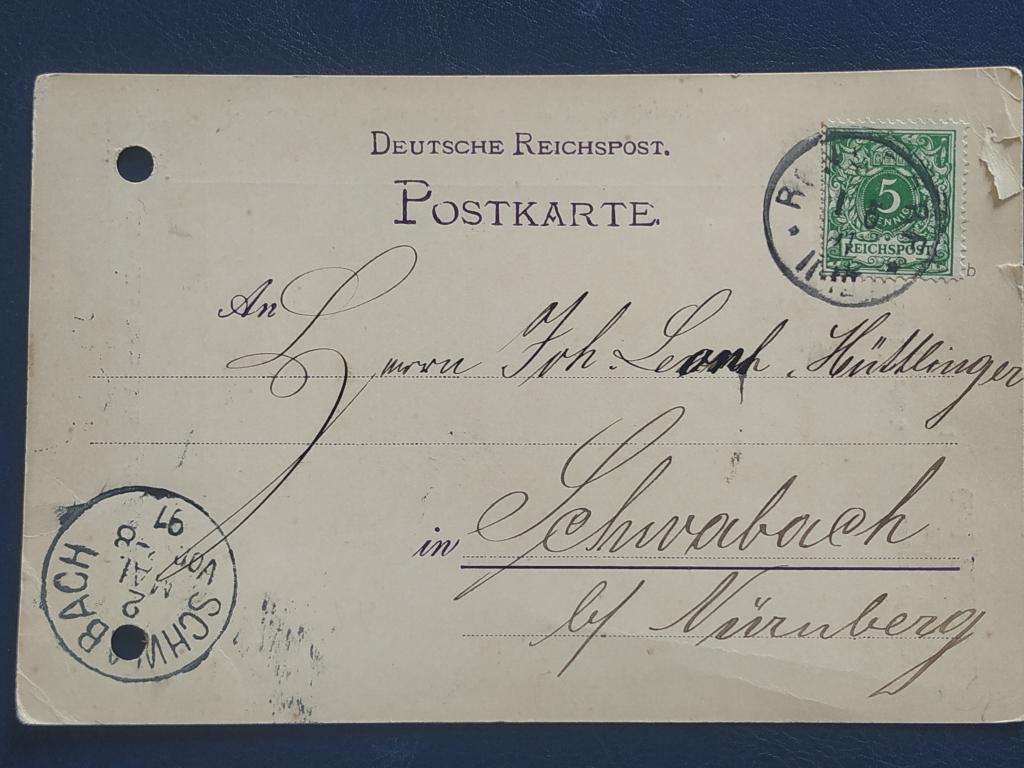 DEUTSCHE REICHSPOST.
POSTKARTE.
5
PFENNIG
REICHSPOST
b
An
Herrn Joh. Leonh. Hüttlinger
in Schwabach
b/ Nürnberg
SCHWABACH
2 MAI
97
VOR
8